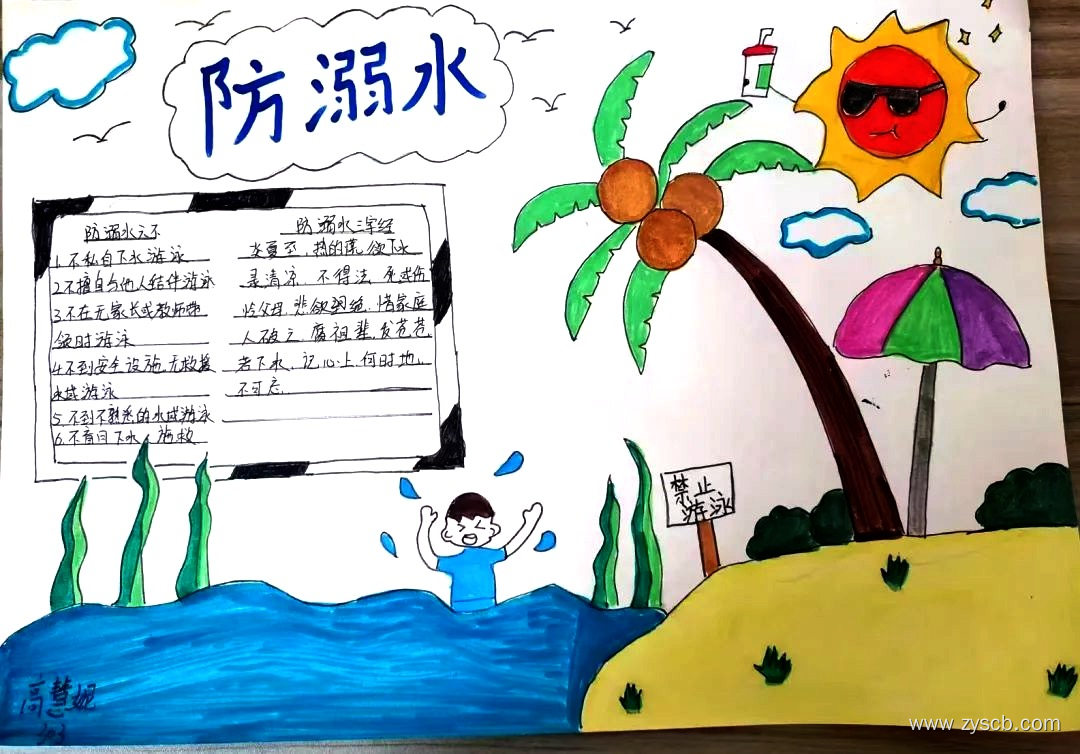 防溺水
防溺水六不
1.不私自下水游泳
2.不擅自与他人结伴游泳
3.不在无家长或教师带
领时游泳
4.不到安全设施,无救援
水域游泳
5.不到不熟悉的水域游泳
6.不盲目下水施救
防溺水三字经
炎夏至,热的慌,欲下水
寻清凉,不得法,死或伤
悲欲绝,惜家庭
人破亡
若下水,记心上,何时地,
不可忘.
禁止
游泳
高慧妮
www.zyscb.com